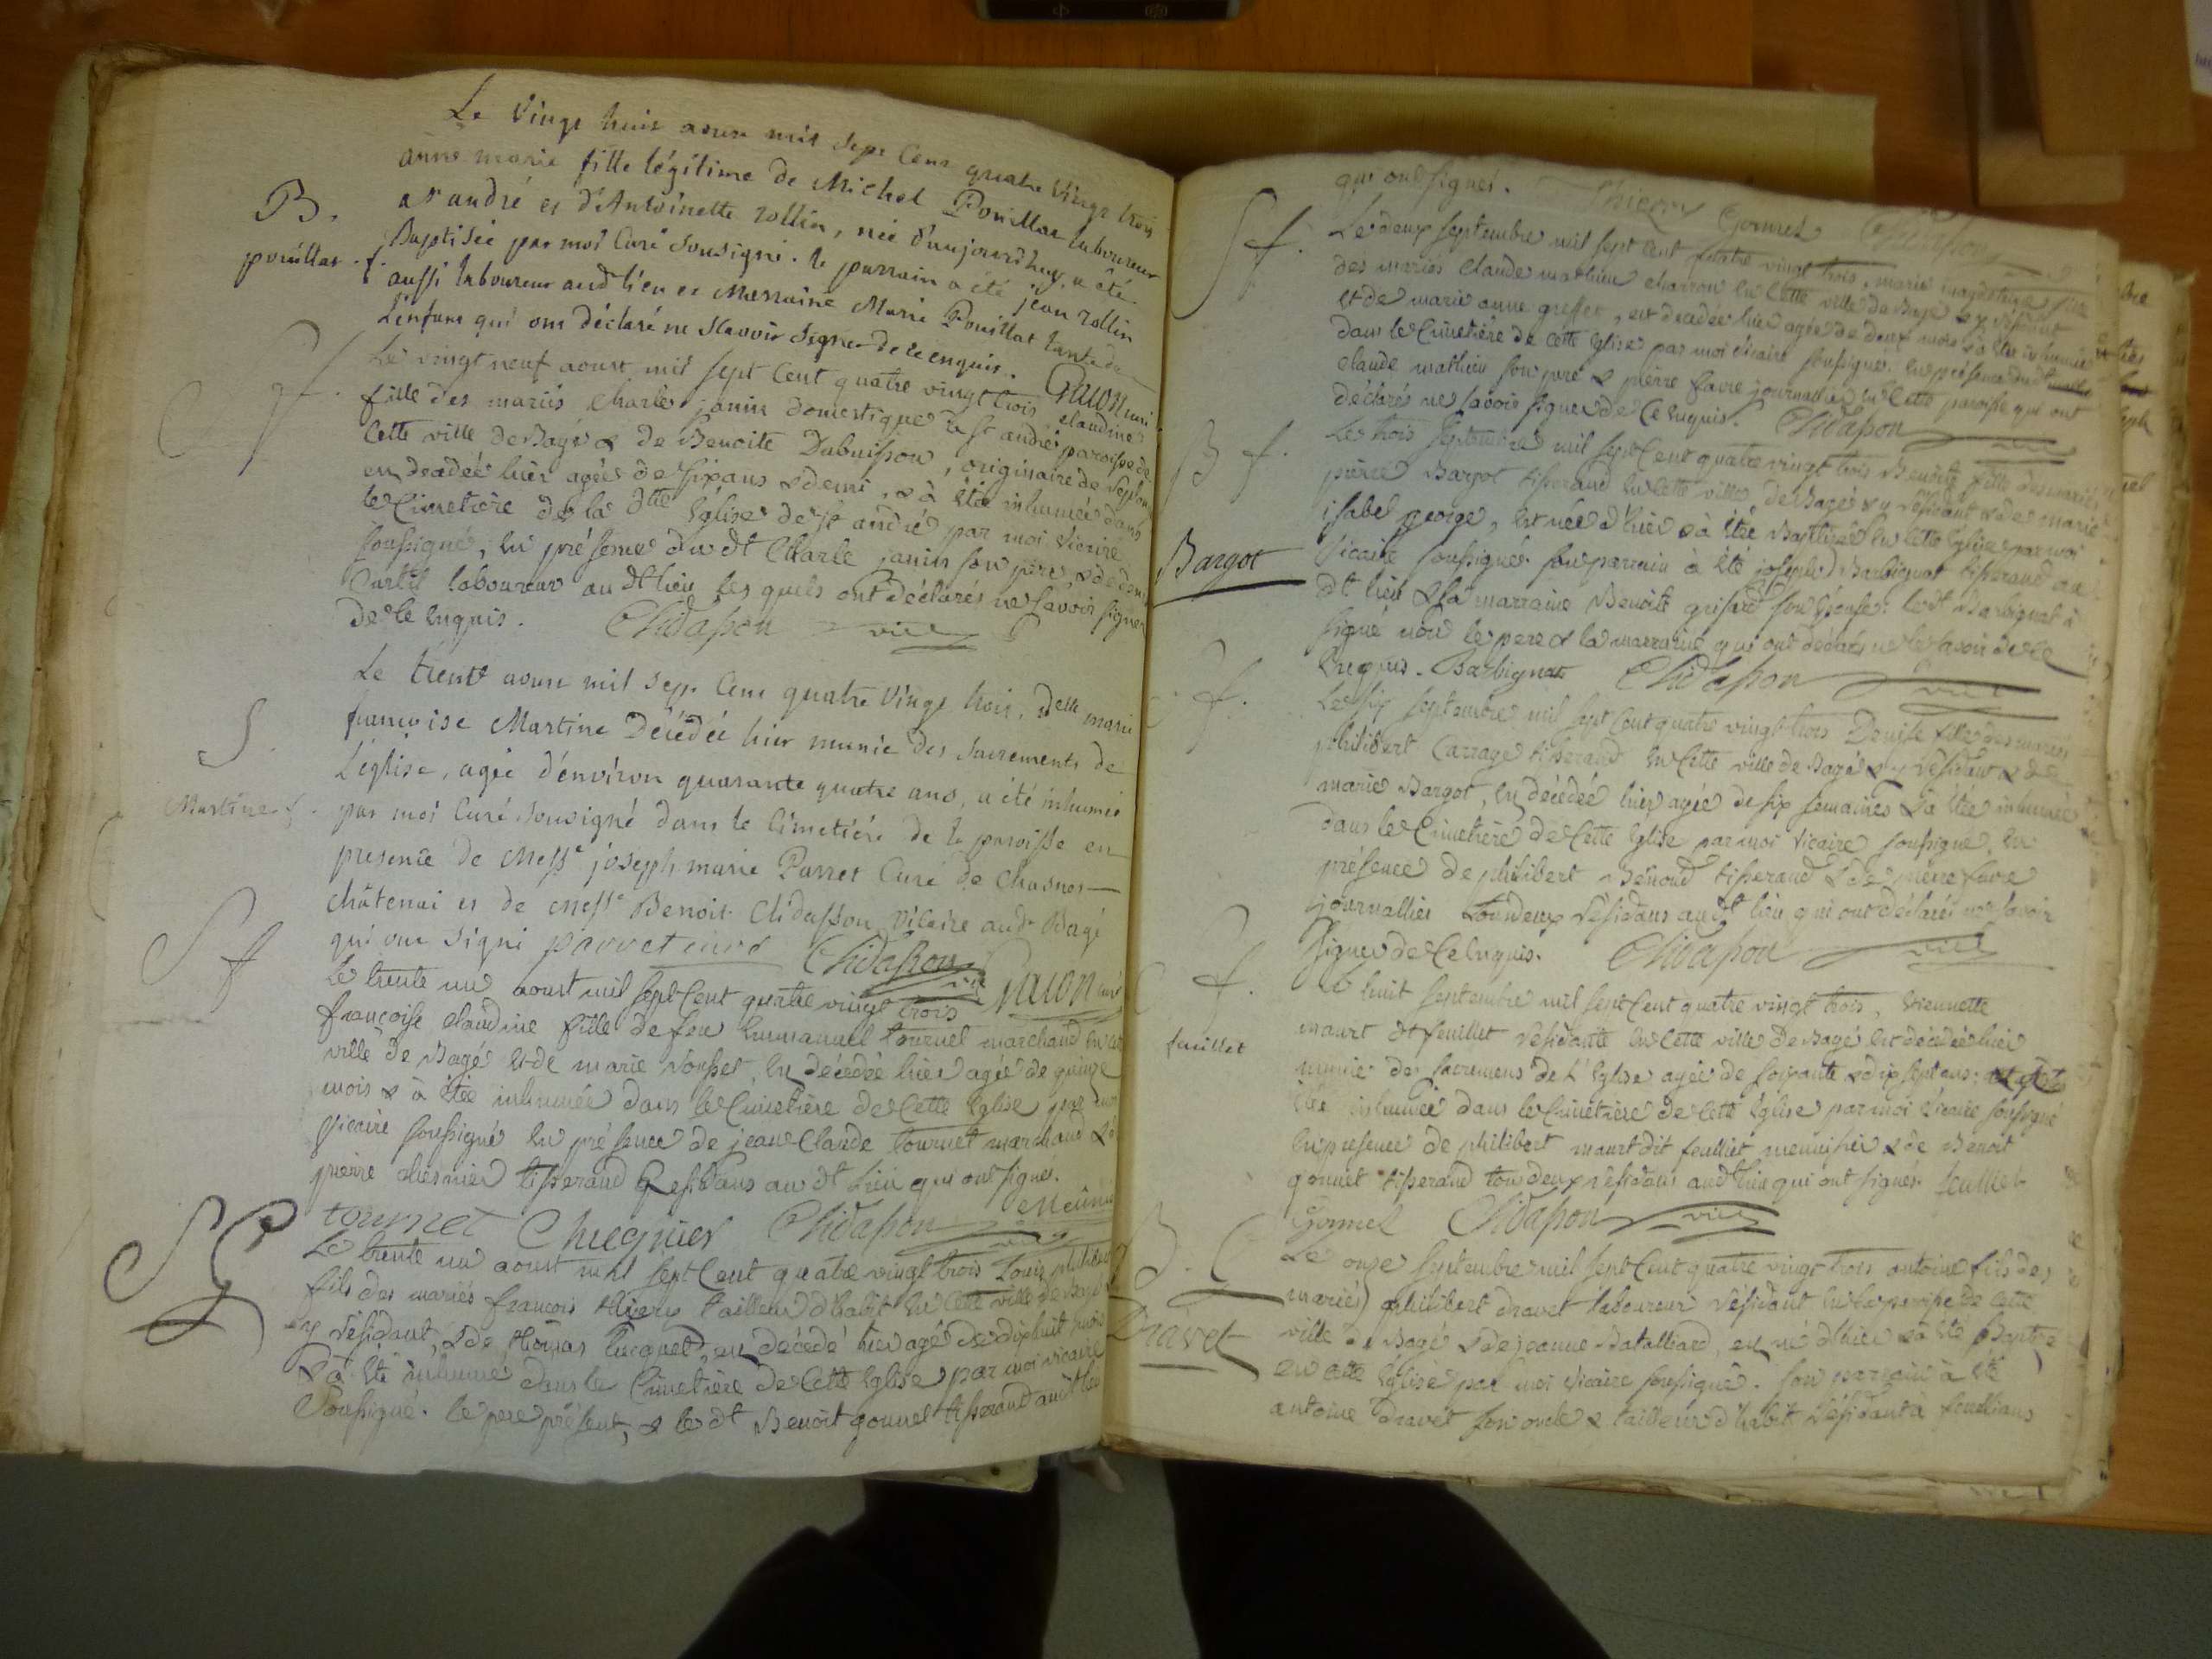 Le vingt huit aoust mil sept cent quatre vingt trois
anne marie fille légitime de Michel Pouillat laboureur
B.
a st andré et d'Antoinette rollin, née d'aujourd'huy, a été
pouillat. f.
Baptisée par moi Curé Sousigné. le parrain a été jean rollin
aussi laboureur aud lieu et Marraine Marie Pouillat tante de
L'enfant qui ont déclaré ne sçavoir signer de ce enquis.
S f.
Le vingt neuf aoust mil sept cent quatre vingt trois claudine
fille des mariés Charle janin domestique a st andré paroisse de
cette ville de Bagé & de Benoite Dubuisson, originaire de
en decedée hier agée de six ans & demi, & à étée inhumée dans
le Cimetière de la dtte Eglise de st andré par moi vicaire
soussigné, en présence du dt Charle janin son père, & de
laboureur au dt lieu les quels ont déclarés ne savoir signer
de ce enquis. Chidasson vic
S.
Le trente aoust mil sept cent quatre vingt trois, Delle marie
francoise Martine Décédée hier munie des Sacrements de
L'église, agée d'environ quarante quatre ans, a été inhumée
Martine f.
par moi Curé Sousigné dans le Cimetière de la paroisse en
presence de Messe joseph marie Parret Curé de
châtenai et de Messe Benoit Chidasson Vicaire aud Bagé
qui ont signé parret curé Chidasson vic
S f
Le trente un aoust mil sept cent quatre vingt trois
françoise claudine fille de feu Emmanuel tournet marchand en cette
ville de Bagé et de marie est décédée hier agée de quinze
mois & à étée inhumée dans le Cimetière de cette Eglise par moi
vicaire soussigné en présence de jean Claude tournet marchand & de
pierre tisserand Residans au dt lieu qui ont signé.
tournet Chidasson vic
S G
Le trente un aoust mil sept cent quatre vingt trois Louis philibert
fils des mariés françois thiery tailleur d'habit en cette ville de Bagé
y résidant, & de en décédé hier agé de dixhuit mois
& à été inhumé dans le Cimetière de cette Eglise par moi vicaire
Soussigné. le pere présent, & le dt Benoit gonnet tisserand au dt lieu
qui ont signés. Thierry Gonnet Chidasson
S f.
Le deux septembre mil sept cent quatre vingt trois, marie fille
des mariés claude mathieu charron en cette ville de Bagé & y résidant
et de marie anne greffet, est decedée hier agée de deux mois & à été inhumée
dans le Cimetière de cette Eglise par moi vicaire soussigné. en présence dudt
claude mathieu son père & pierre favre journallier en cette paroisse qui ont
déclarés ne savoir signer de ce enquis. Chidasson vic
B f.
Le trois septembre mil sept cent quatre vingt trois Benoite fille des mariés
pierre Bargot tisserand en cette ville de Bagé & y résidant & de marie
isabel george, est née d'hier & à étée Baptisée en cette Eglise par moi
Bargot
vicaire soussigné. son parrain à été joseph Barbignat tisserand au
dt lieu & sa marraine Benoite son Epouse. le dt Barbignat à
signé non le pere & la marraine qui ont déclarés ne le savoir de ce
Enquis. Barbignat Chidasson vic
S f.
Le six septembre mil sept cent quatre vingt trois Denise fille des mariés
philibert Carrage tisserand en cette ville de Bagé & y résidant & de
marie Bargot, en décédée hier agée de six semaines & à étée inhumée
dans le Cimetière de cette Eglise par moi vicaire soussigné. en
présence de philibert tisserand & de pierre favre
journallier tou deux résidans au dt lieu qui ont déclarés ne savoir
signer de ce enquis. Chidasson vic
S f.
Le huit septembre mil sept cent quatre vingt trois, Etiennette
feuillet
maurt dt feuillet résidante en cette ville de Bagé est décédée hier
munie des sacremens de l'Eglise agée de soixante & dix sept ans,
étée inhumée dans le Cimetière de cette Eglise par moi vicaire soussigné
en presence de philibert maurt dit feuillet menuisier & de Benoit
gonnet tisserand tou deux résidans au dt lieu qui ont signés. feuillet
Gonnet Chidasson vic
B. f
Le onze septembre mil sept cent quatre vingt trois antoine fils des
mariés philibert dravet laboureur résidant en la paroisse de cette
Dravet
ville de Bagé & de jeanne Batalliard, est né d'hier & à été Baptisé
en cette Eglise par moi vicaire soussigné. son parrain à été
antoine dravet son oncle & tailleur d'habit résidant à feuillians